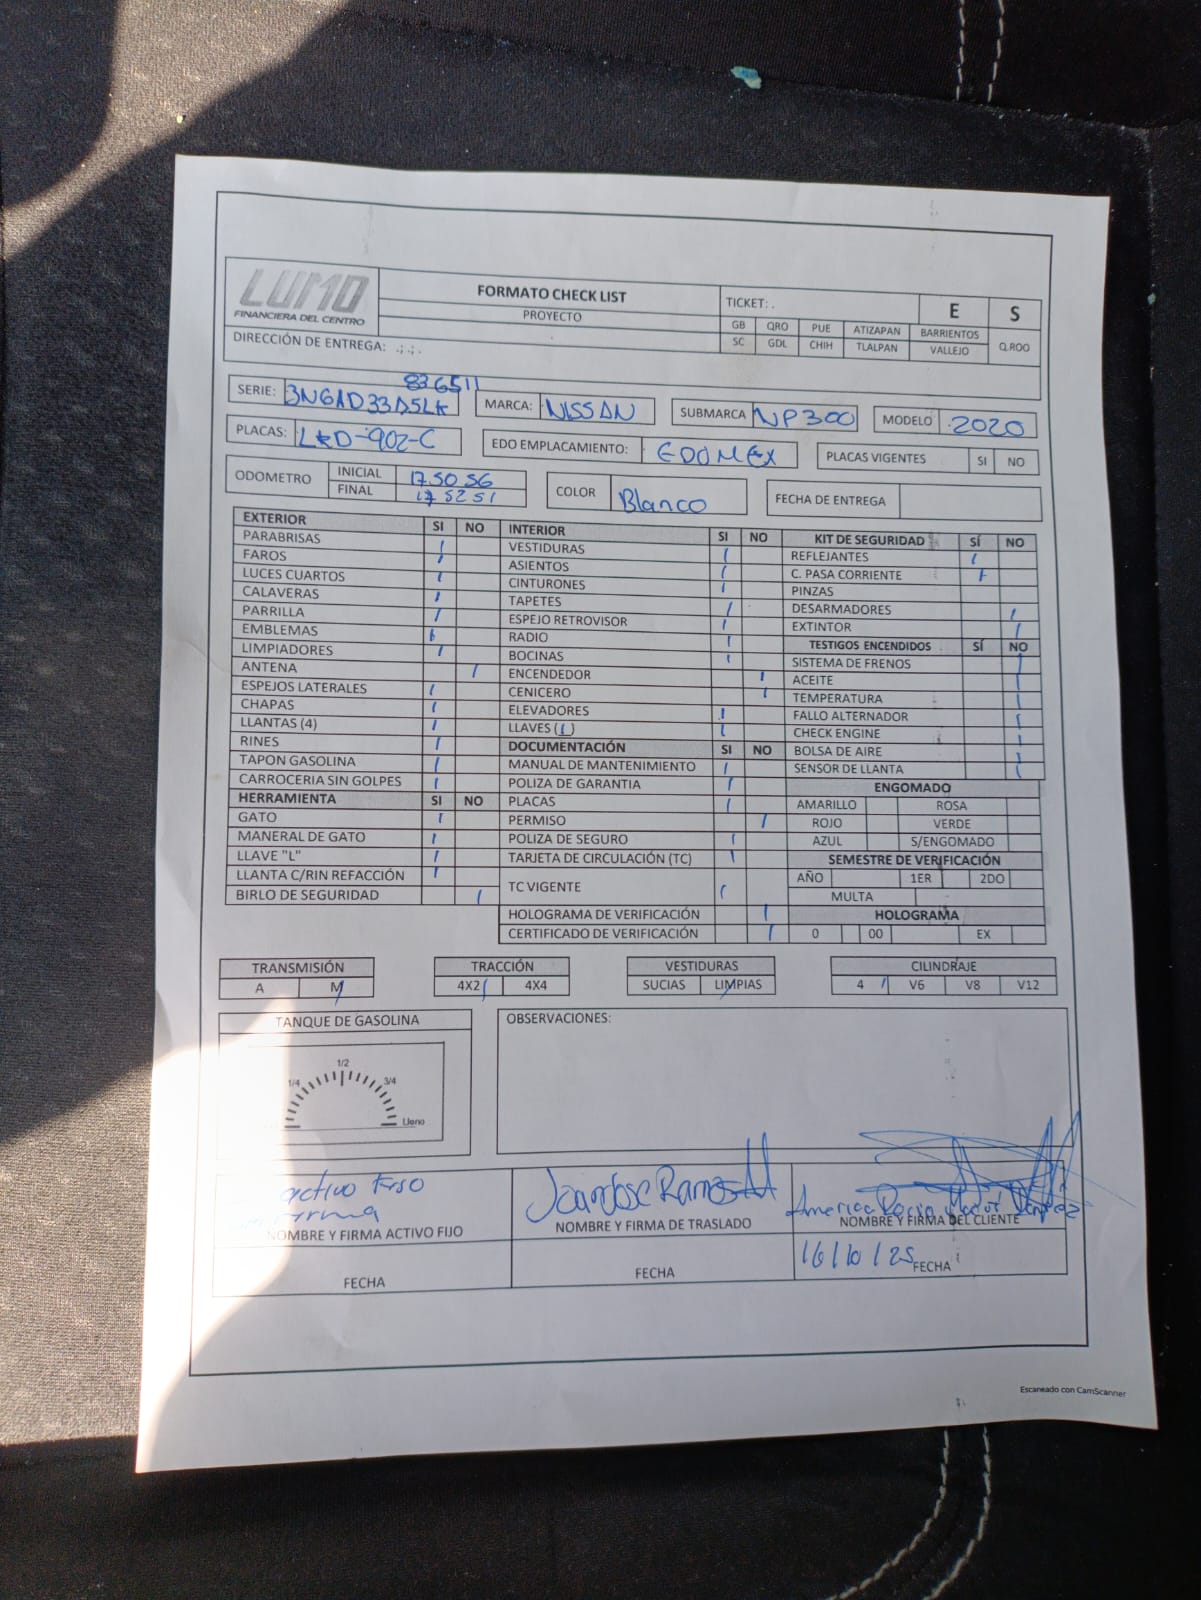 LUMO
FINANCIERA DEL CENTRO
FORMATO CHECK LIST
PROYECTO
TICKET: .
E S
GB QRO PUE ATIZAPAN BARRIENTOS
SC GDL CHIH TLALPAN VALLEJO Q.ROO
DIRECCIÓN DE ENTREGA: .;.;.
836511
SERIE: 3N6AD33A5LK MARCA: NISSAN SUBMARCA NP300 MODELO 2020
PLACAS: LRD-902-C EDO EMPLACAMIENTO: EDOMEX PLACAS VIGENTES SI NO
ODOMETRO INICIAL 175056 COLOR Blanco FECHA DE ENTREGA
FINAL 175251
EXTERIOR SI NO
PARABRISAS /
FAROS /
LUCES CUARTOS /
CALAVERAS /
PARRILLA /
EMBLEMAS /
LIMPIADORES /
ANTENA /
ESPEJOS LATERALES /
CHAPAS /
LLANTAS (4) /
RINES /
TAPON GASOLINA /
CARROCERIA SIN GOLPES /
HERRAMIENTA SI NO
GATO /
MANERAL DE GATO /
LLAVE "L" /
LLANTA C/RIN REFACCIÓN /
BIRLO DE SEGURIDAD /
INTERIOR SI NO
VESTIDURAS /
ASIENTOS /
CINTURONES /
TAPETES /
ESPEJO RETROVISOR /
RADIO /
BOCINAS /
ENCENDEDOR /
CENICERO /
ELEVADORES /
LLAVES (1) /
DOCUMENTACIÓN SI NO
MANUAL DE MANTENIMIENTO /
POLIZA DE GARANTIA /
PLACAS /
PERMISO /
POLIZA DE SEGURO /
TARJETA DE CIRCULACIÓN (TC) /
TC VIGENTE /
HOLOGRAMA DE VERIFICACIÓN /
CERTIFICADO DE VERIFICACIÓN /
KIT DE SEGURIDAD SÍ NO
REFLEJANTES /
C. PASA CORRIENTE /
PINZAS
DESARMADORES /
EXTINTOR /
TESTIGOS ENCENDIDOS SÍ NO
SISTEMA DE FRENOS /
ACEITE /
TEMPERATURA /
FALLO ALTERNADOR /
CHECK ENGINE /
BOLSA DE AIRE /
SENSOR DE LLANTA /
ENGOMADO
AMARILLO ROSA
ROJO VERDE
AZUL S/ENGOMADO
SEMESTRE DE VERIFICACIÓN
AÑO 1ER 2DO
MULTA
HOLOGRAMA
0 00 EX
TRANSMISIÓN
A M /
TRACCIÓN
4X2 / 4X4
VESTIDURAS
SUCIAS LIMPIAS /
CILINDRAJE
4 / V6 V8 V12
TANQUE DE GASOLINA
1/4 1/2 3/4 Lleno
OBSERVACIONES:
activo fijo
firma
NOMBRE Y FIRMA ACTIVO FIJO
FECHA
Juan Jose Ramos
NOMBRE Y FIRMA DE TRASLADO
FECHA
America Rocio
NOMBRE Y FIRMA DEL CLIENTE
16/10/25 FECHA
Escaneado con CamScanner